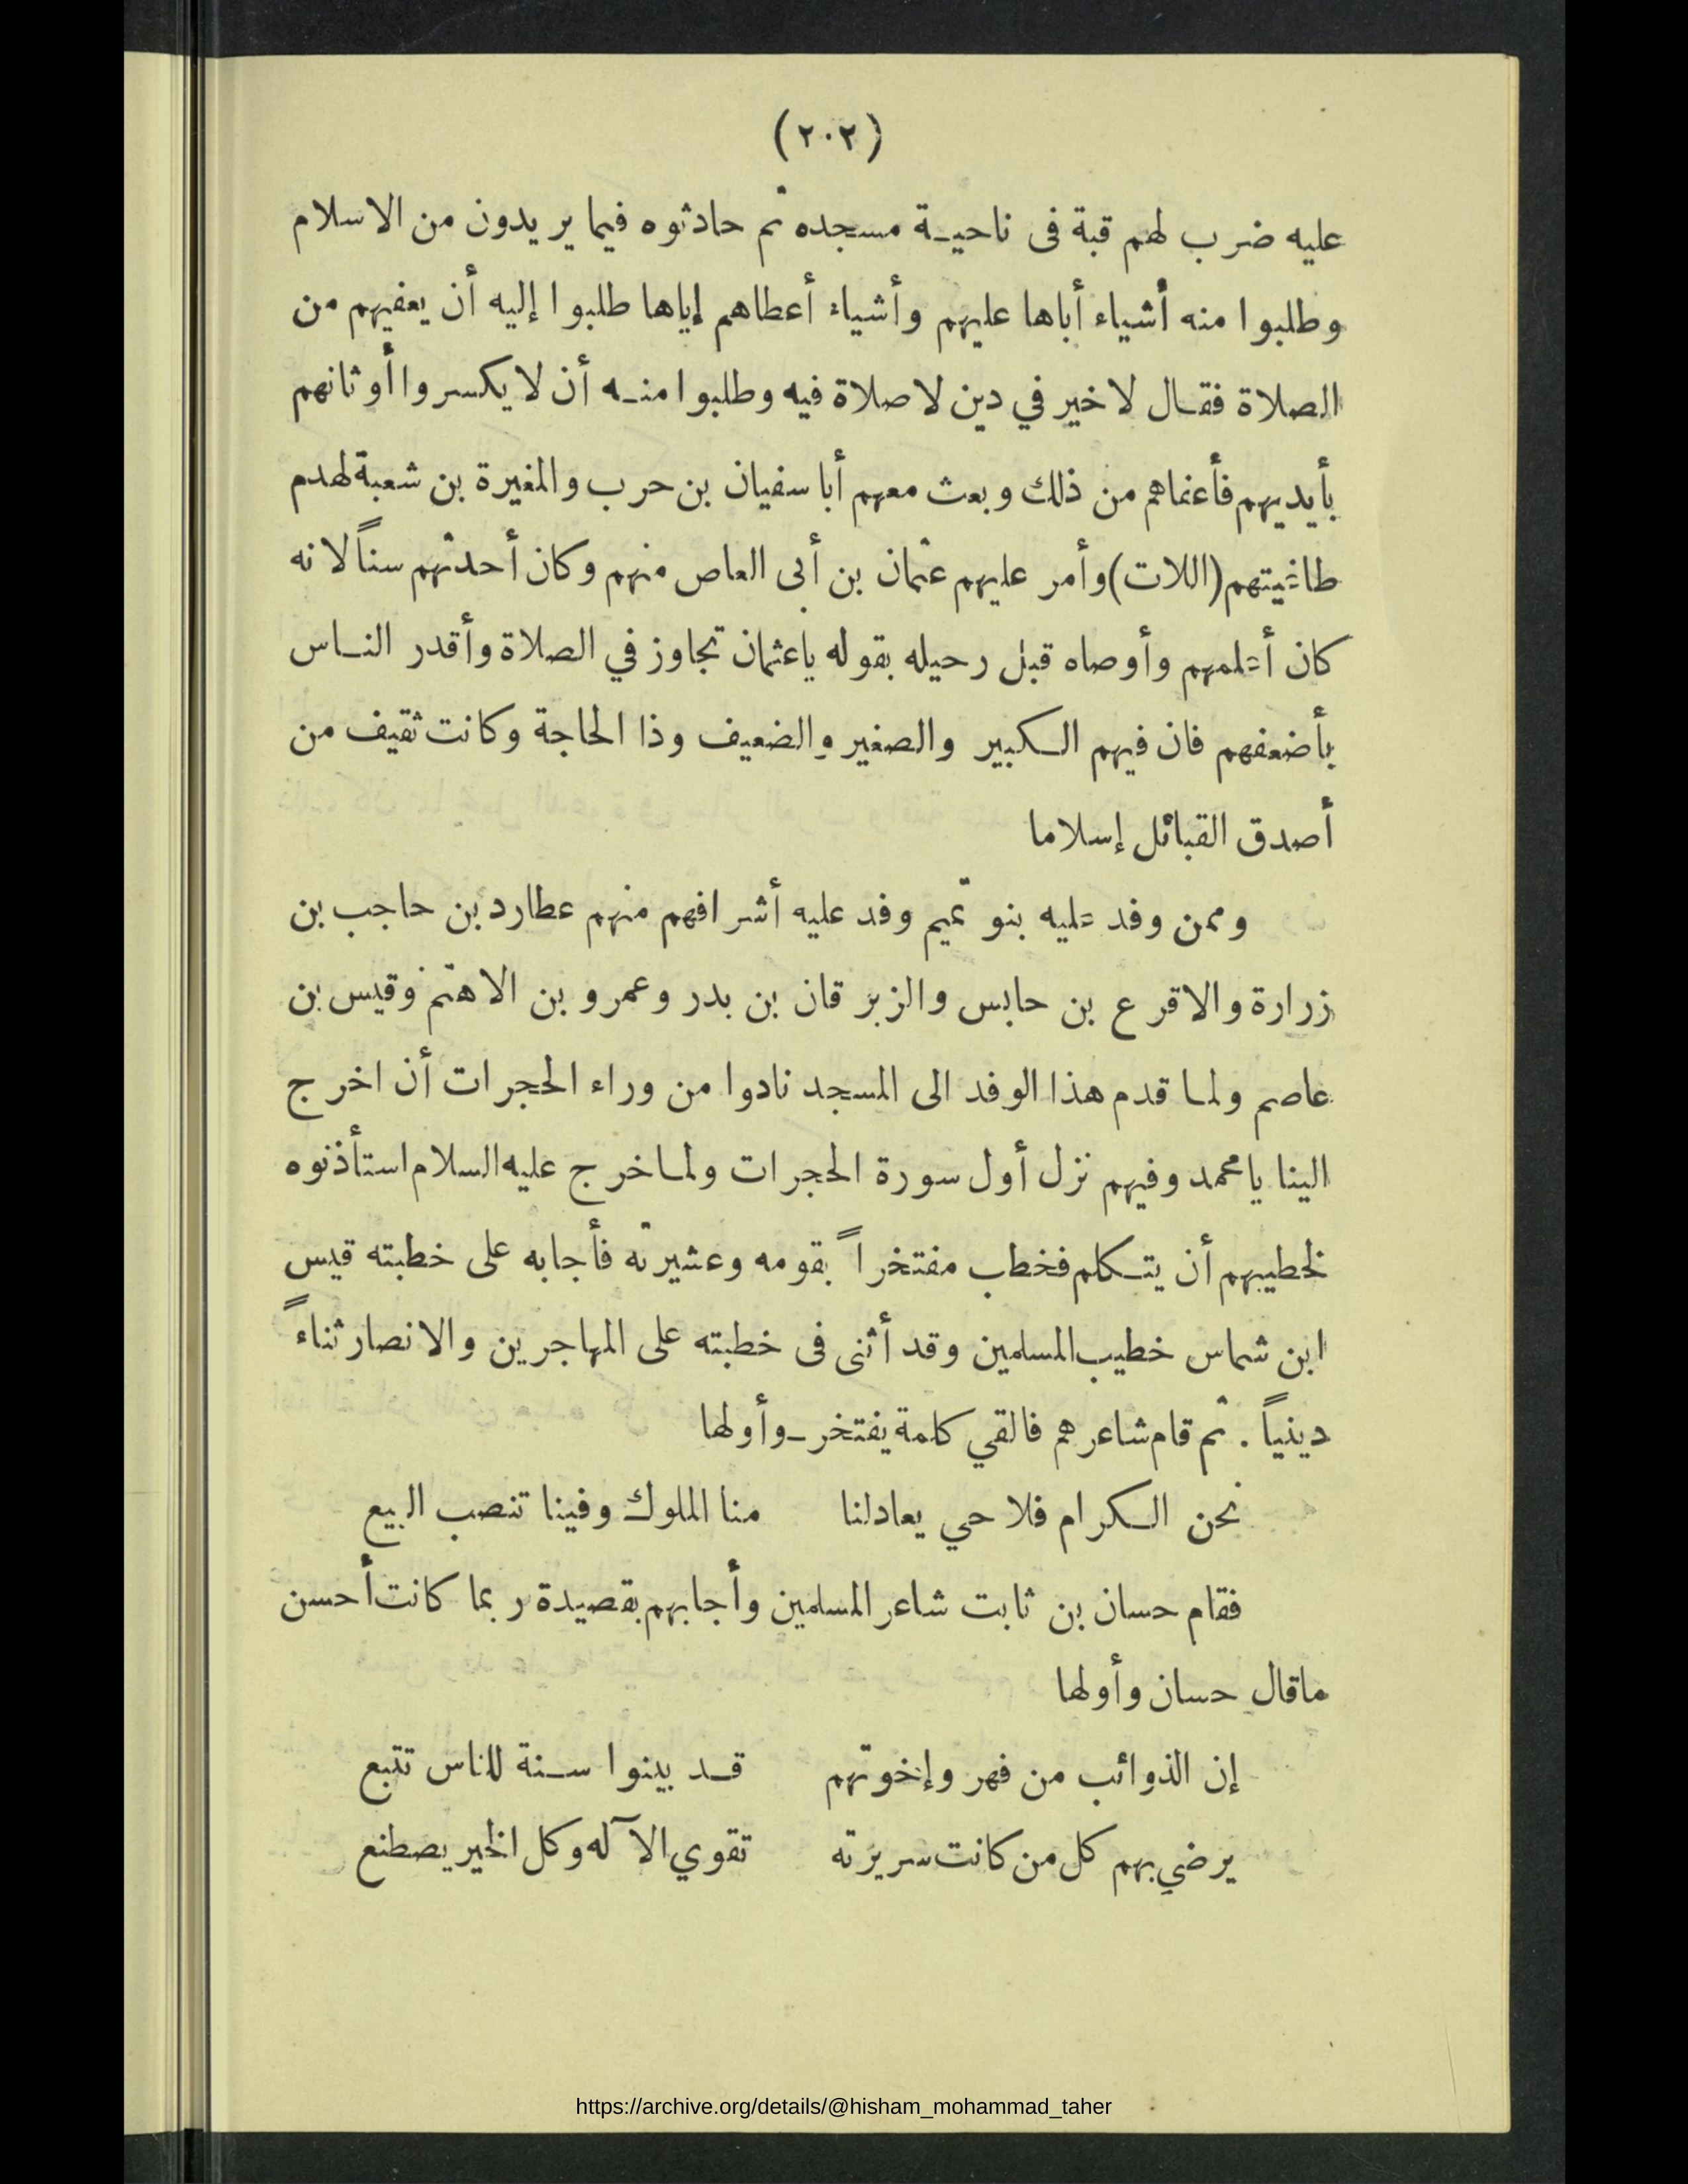 (٢٠٢)
عليه ضرب لهم قبة فى ناحيـة مسجده ثم حادثوه فيما يريدون من الاسلام
وطلبوا منه أشياء أباها عليهم وأشياء أعطاهم إياها طلبوا إليه أن يعفيهم من
الصلاة فقـال لا خير في دين لا صلاة فيه وطلبوا منـه أن لا يكسروا أوثانهم
بأيديهم فأعفاهم من ذلك وبعث معهم أبا سفيان بن حرب والمغيرة بن شعبة لهدم
طاغيتهم (اللات) وأمر عليهم عثمان بن أبى العاص منهم وكان أحدثهم سناً لانه
كان أعلمهم وأوصاه قبل رحيله بقوله ياعثمان تجاوز في الصلاة وأقدر النـاس
بأضعفهم فان فيهم الـكبير والصغير والضعيف وذا الحاجة وكانت ثقيف من
أصدق القبائل إسلاما
وممن وفد عليه بنو تميم وفد عليه أشرافهم منهم عطارد بن حاجب بن
زرارة والاقرع بن حابس والزبرقان بن بدر وعمرو بن الاهتم وقيس بن
عاصم ولمـا قدم هذا الوفد الى المسجد نادوا من وراء الحجرات أن اخرج
الينا يامحمد وفيهم نزل أول سورة الحجرات ولمـا خرج عليه السلام استأذنوه
لخطيبهم أن يتـكلم فخطب مفتخراً بقومه وعشيرته فأجابه على خطبته قيس
ابن شماس خطيب المسلمين وقد أثنى فى خطبته على المهاجرين والانصار ثناءً
دينياً . ثم قام شاعرهم فالقي كلمة يفتخر ـ وأولها
نحن الـكرام فلا حي يعادلنا منا الملوك وفينا تنصب البيع
فقام حسان بن ثابت شاعر المسلمين وأجابهم بقصيدة ربما كانت أحسن
ماقال حسان وأولها
إن الذوائب من فهر وإخوتهم قـد بينوا سـنة للناس تتبع
يرضي بهم كل من كانت سريرته تقوي الآله وكل الخير يصطنع
https://archive.org/details/@hisham_mohammad_taher